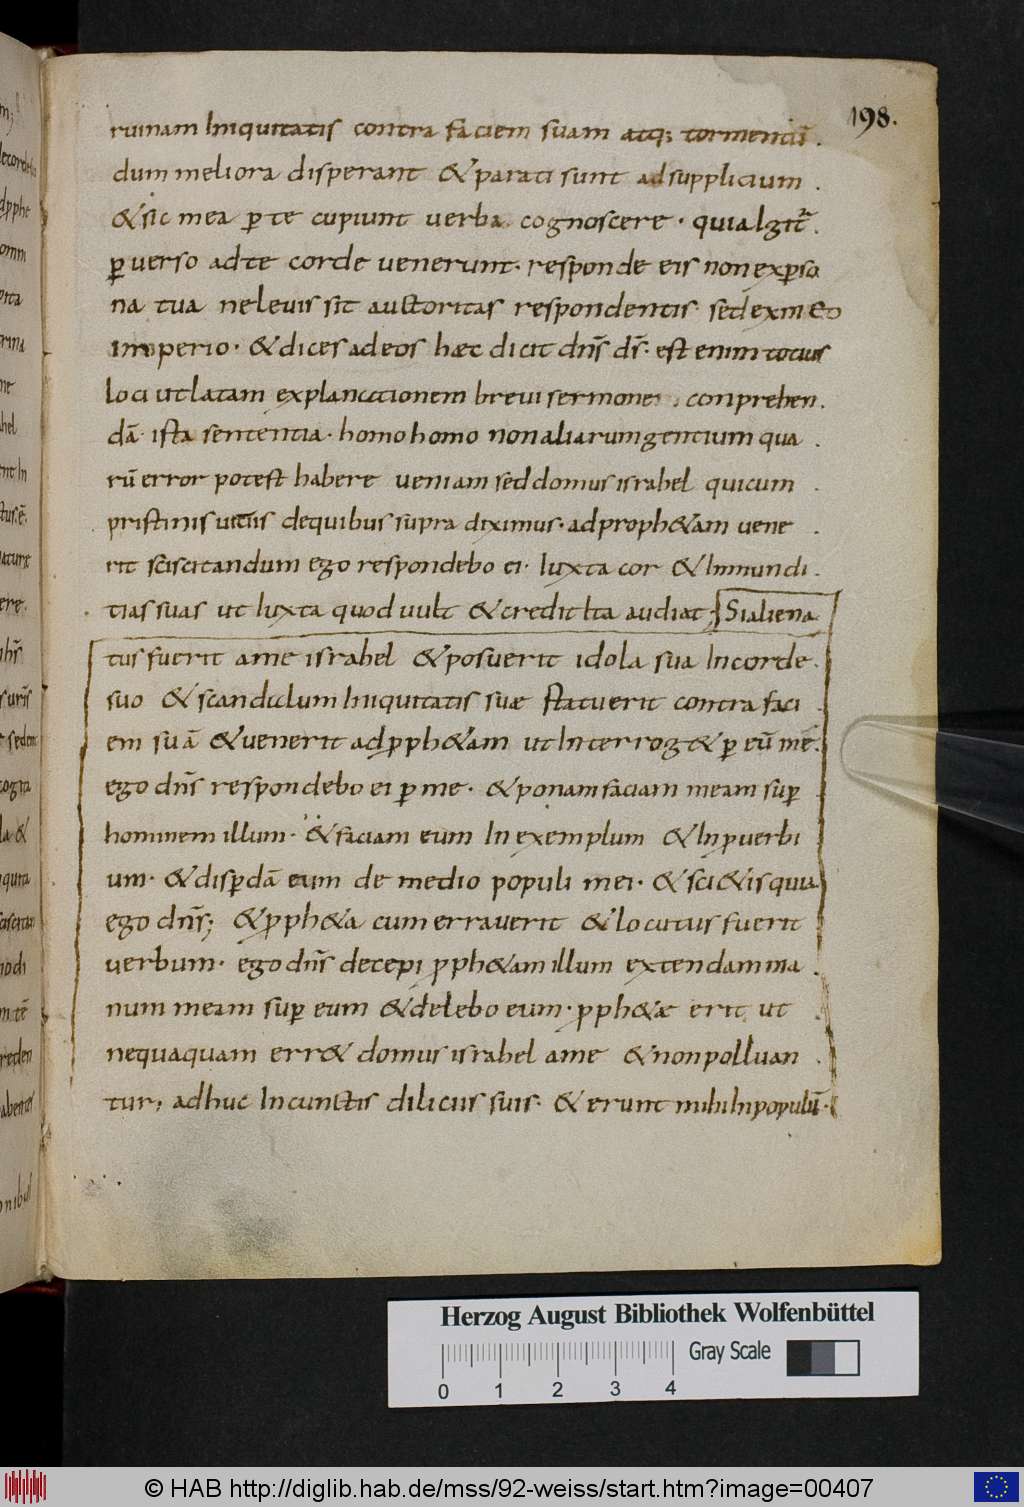 198.
ruinam Iniquitatis contra faciem suam atq; tormentiū.
dum meliora disperant & parati sunt ad supplicium.
& sic mea p te cupiunt verba cognoscere. quia Igit̄.
puerso ad te corde uenerunt. responde eis non ex pso
na tua ne leuis sit auctoritas respondentis sed ex meo
imperio. & dices ad eos haec dicit dn̄s ds̄. est enim totius
loci ut latam explanationem breui sermone conprehen.
dā. ista sententia. homo homo non aliarum gentium qua.
rū error potest habere ueniam sed domus israhel quicum.
pristinis uitiis de quibus supra diximus. ad proph&am uene.
rit sciscitandum ego respondebo ei. Iuxta cor & Inmundi.
tias suas ut Iuxta quod uult & credit Ita audiat; Si aliena
tus fuerit a me israhel & posuerit idola sua In corde.
suo & scandalum Iniquitatis suae statuerit contra faci.
em suā & uenerit ad pph&am ut Interrog& p eū me.
ego dn̄s respondebo ei p me. & ponam faciam meam sup
hominem illum. & faciam eum In exemplum & In puerbi
um. & dispdā eum de medio populi mei. & sci&is quia
ego dn̄s; & pph&a cum errauerit & locutus fuerit
uerbum. ego dn̄s decepi pph&am illum extendam ma.
num meam sup eum & delebo eum. pph&ae erit ut
nequaquam err& domus israhel a me & non polluan.
tur, adhuc In cunctis diliciis suis. & erunt mihi In populū.
Herzog August Bibliothek Wolfenbüttel
Gray Scale
0 1 2 3 4
© HAB http://diglib.hab.de/mss/92-weiss/start.htm?image=00407